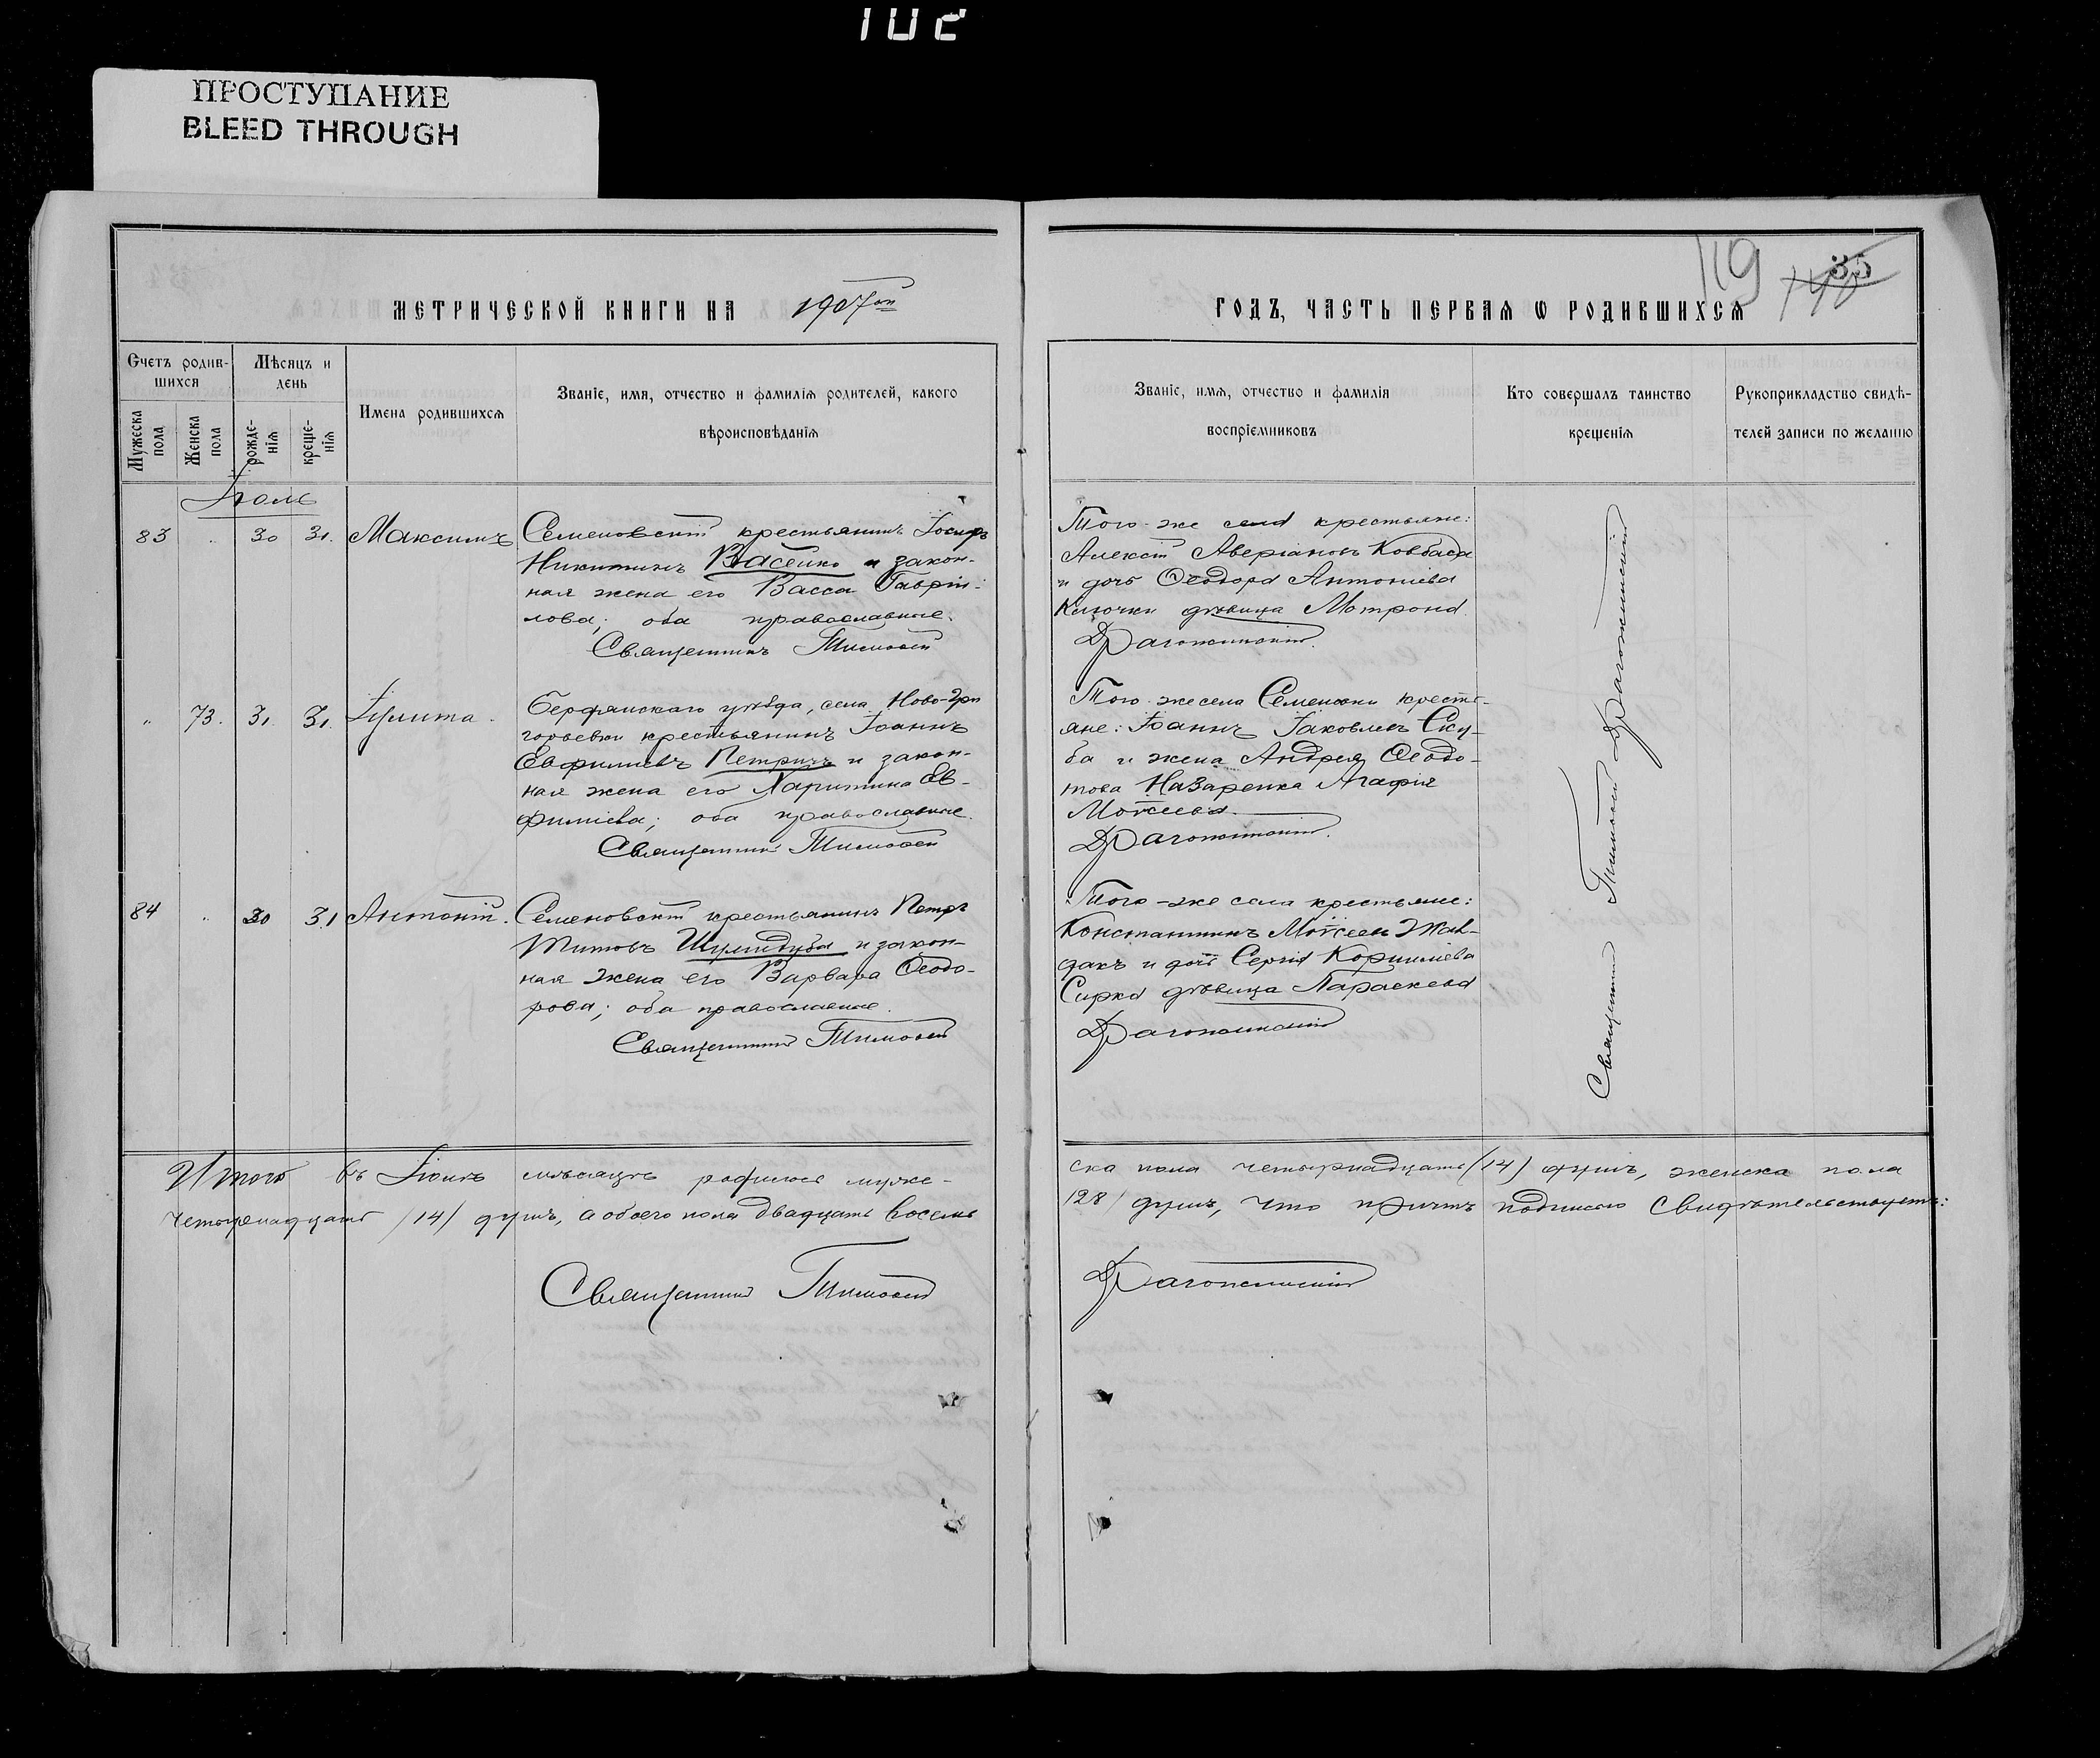 102
ПРОСТУПАНИЕ
BLEED THROUGH
119
35
МЕТРИЧЕСКОЙ КНИГИ НА 1907 ой
ГОДЪ, ЧАСТЬ ПЕРВАЯ Ѡ РОДИВШИХСЯ
Счетъ родив-
шихся
Мужеска
пола
Женска
пола
Мѣсяцъ и
день
рожде-
нія
креще-
нія
Имена родившихся
Званіе, имя, отчество и фамилія родителей, какого
вѣроисповѣданія
Званіе, имя, отчество и фамилія
воспріемниковъ
Кто совершалъ таинство
крещенія
Рукоприкладство свидѣ-
телей записи по желанію
83 30 31. Максимъ
Семеновскій крестьянинъ Іосифъ
Никитинъ Власенко и закон-
ная жена его Васса Гаврі-
лова; оба православные.
Священникъ Тимоѳей
Того-же села крестьяне:
Алексій Аверіановъ Ковбаса
и дочь Ѳеодора Антоніева
Клочки дѣвица Матрона.
Драгожинскій.
73. 31. 31. Іулитта.
Бердянскаго уѣзда, села Ново-Гри
горьевки крестьянинъ Іоаннъ
Евфиміевъ Петричъ и закон-
ная жена его Харитина Ев-
фиміева; оба православные.
Священникъ Тимоѳей
Того-же села Семеновки кресть-
яне: Іоаннъ Іаковлевъ Ску-
ба и жена Андрея Ѳеодо-
това Назаренка Агафія
Моѵсеева.
Драгожинскій.
84 30 31 Антоній.
Семеновскій крестьянинъ Петръ
Титовъ и закон-
ная жена его Варвара Ѳеодо-
рова; оба православные.
Священникъ Тимоѳей
Того-же села крестьяне:
Константинъ Моѵсеевъ Жав-
дакъ и дочь Сергія Корниліева
Сирка дѣвица Параскева
Драгожинскій
Священникъ Тимоѳей Драгожинскій
Итого въ мѣсяцѣ родилось муже-
ска пола четырнадцать (14) душъ, женска пола
четырнадцать /14/ душъ, а обоего пола двадцать восемь
/28/ душъ, что причтъ подписью свидѣтельствуетъ:
Священникъ Тимоѳей
Драгожинскій